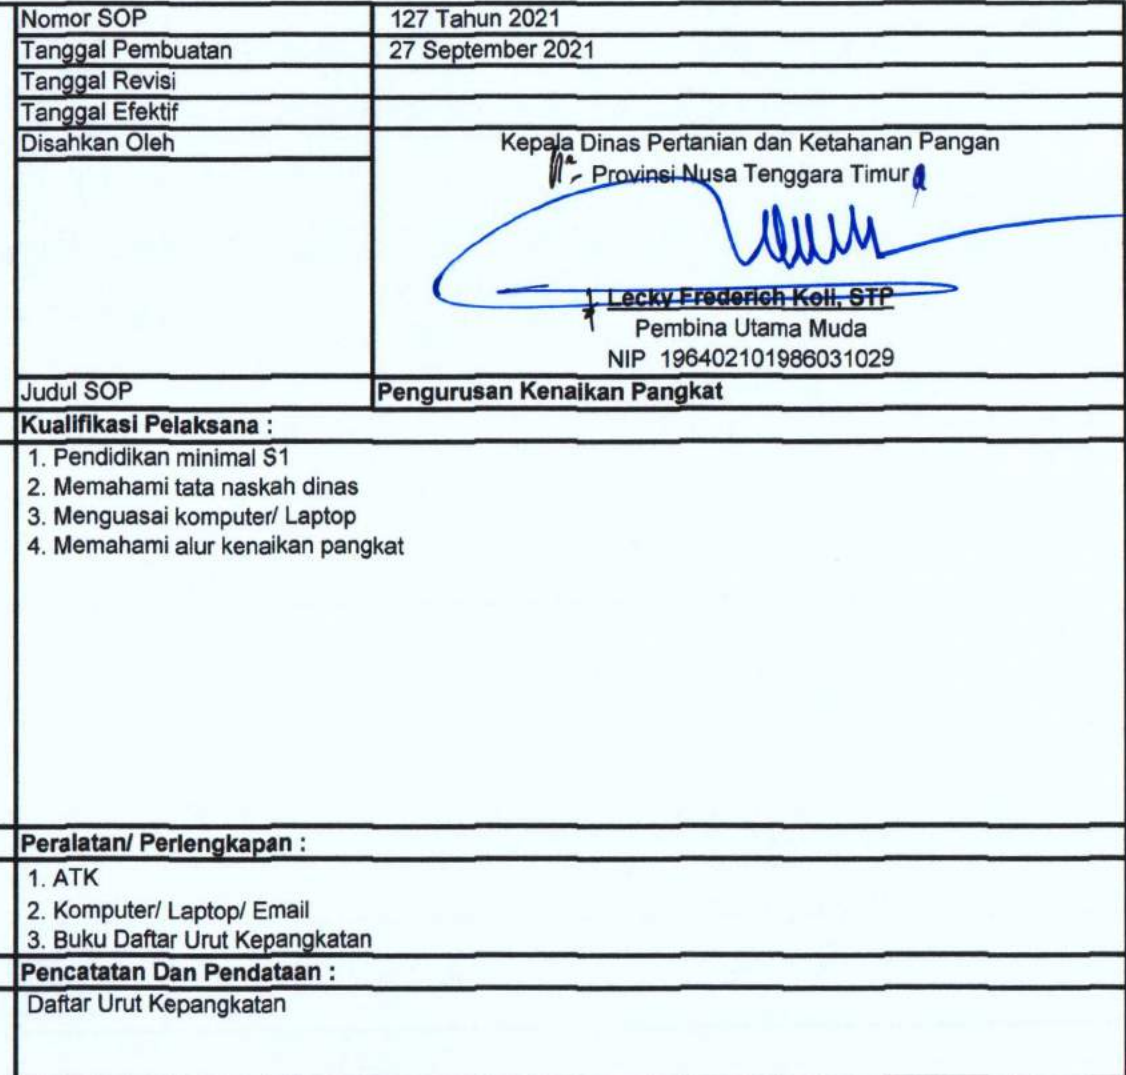 Nomor SOP 127 Tahun 2021
Tanggal Pembuatan 27 September 2021
Tanggal Revisi
Tanggal Efektif
Disahkan Oleh Kepala Dinas Pertanian dan Ketahanan Pangan
Provinsi Nusa Tenggara Timur
Lecky Frederich Koli, STP
Pembina Utama Muda
NIP 196402101986031029
Judul SOP Pengurusan Kenaikan Pangkat
Kualifikasi Pelaksana :
1. Pendidikan minimal S1
2. Memahami tata naskah dinas
3. Menguasai komputer/ Laptop
4. Memahami alur kenaikan pangkat
Peralatan/ Perlengkapan :
1. ATK
2. Komputer/ Laptop/ Email
3. Buku Daftar Urut Kepangkatan
Pencatatan Dan Pendataan :
Daftar Urut Kepangkatan